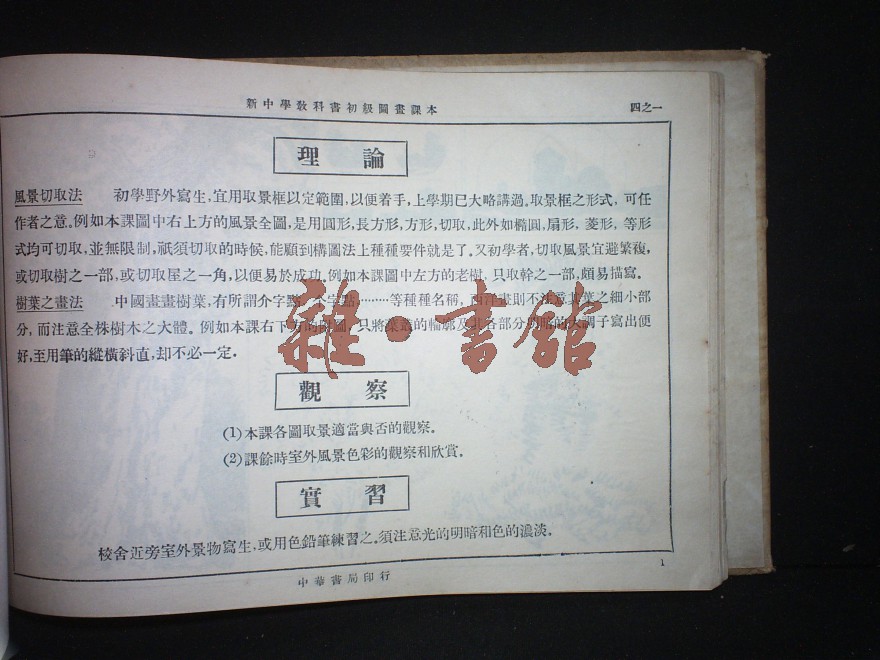 新中學教科書初級圖畫課本
四之一
理論
風景切取法 初學野外寫生,宜用取景框以定範圍,以便着手,上學期已大略講過。取景框之形式,可任
作者之意。例如本課圖中右上方的風景全圖,是用圓形,長方形,方形,切取,此外如橢圓,扇形,菱形,等形
式均可切取,並無限制,祇須切取的時候,能顧到構圖法上種種要件就是了。又初學者,切取風景宜避繁複,
或切取樹之一部,或切取屋之一角,以便易於成功。例如本課圖中左方的老樹,只取幹之一部,頗易描寫。
樹葉之畫法 中國畫畫樹葉,有所謂介字點,字點,………等種種名稱,西洋畫則不注意其葉之細小部
分,而注意全株樹木之大體。例如本課右下方的圖,只將葉叢的輪廓及其各部分明暗的大調子寫出便
好,至用筆的縱橫斜直,却不必一定。
雜·書館
觀察
(1)本課各圖取景適當與否的觀察。
(2)課餘時室外風景色彩的觀察和欣賞。
實習
校舍近旁室外景物寫生,或用色鉛筆練習之。須注意光的明暗和色的濃淡。
中華書局印行
1